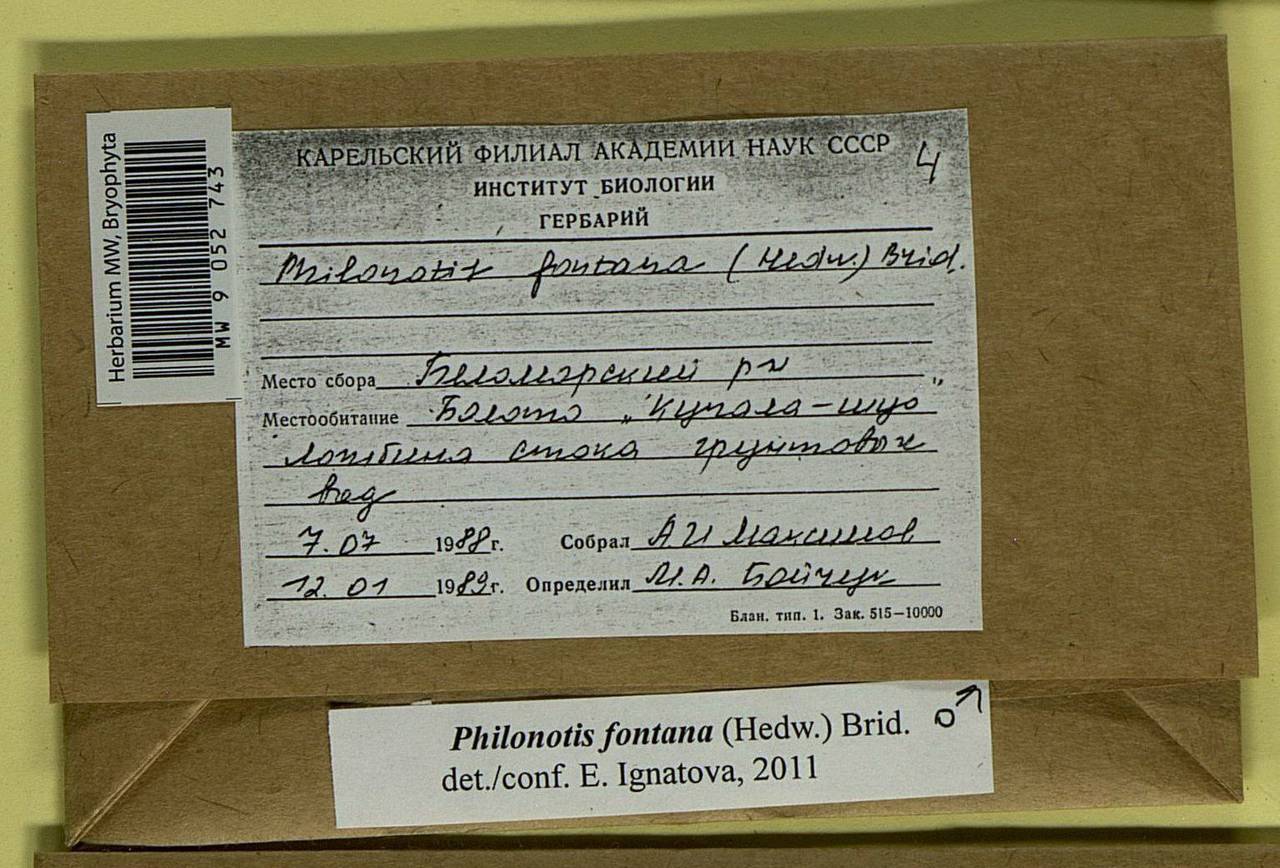 Herbarium MW, Bryophyta
MW 9 052 743
КАРЕЛЬСКИЙ ФИЛИАЛ АКАДЕМИИ НАУК СССР
4
ИНСТИТУТ БИОЛОГИИ
ГЕРБАРИЙ
Philonotis fontana (Hedw.) Brid.
Место сбора Беломорский р-н
Местообитание Болото „Кугала-шуо"
ложбина стока грунтовых
вод
7.07 1988г. Собрал А И Максимов
12.01 1989г. Определил М.А. Бойчук
Блан. тип. 1. Зак. 515—10000
Philonotis fontana (Hedw.) Brid. ♂
det./conf. E. Ignatova, 2011